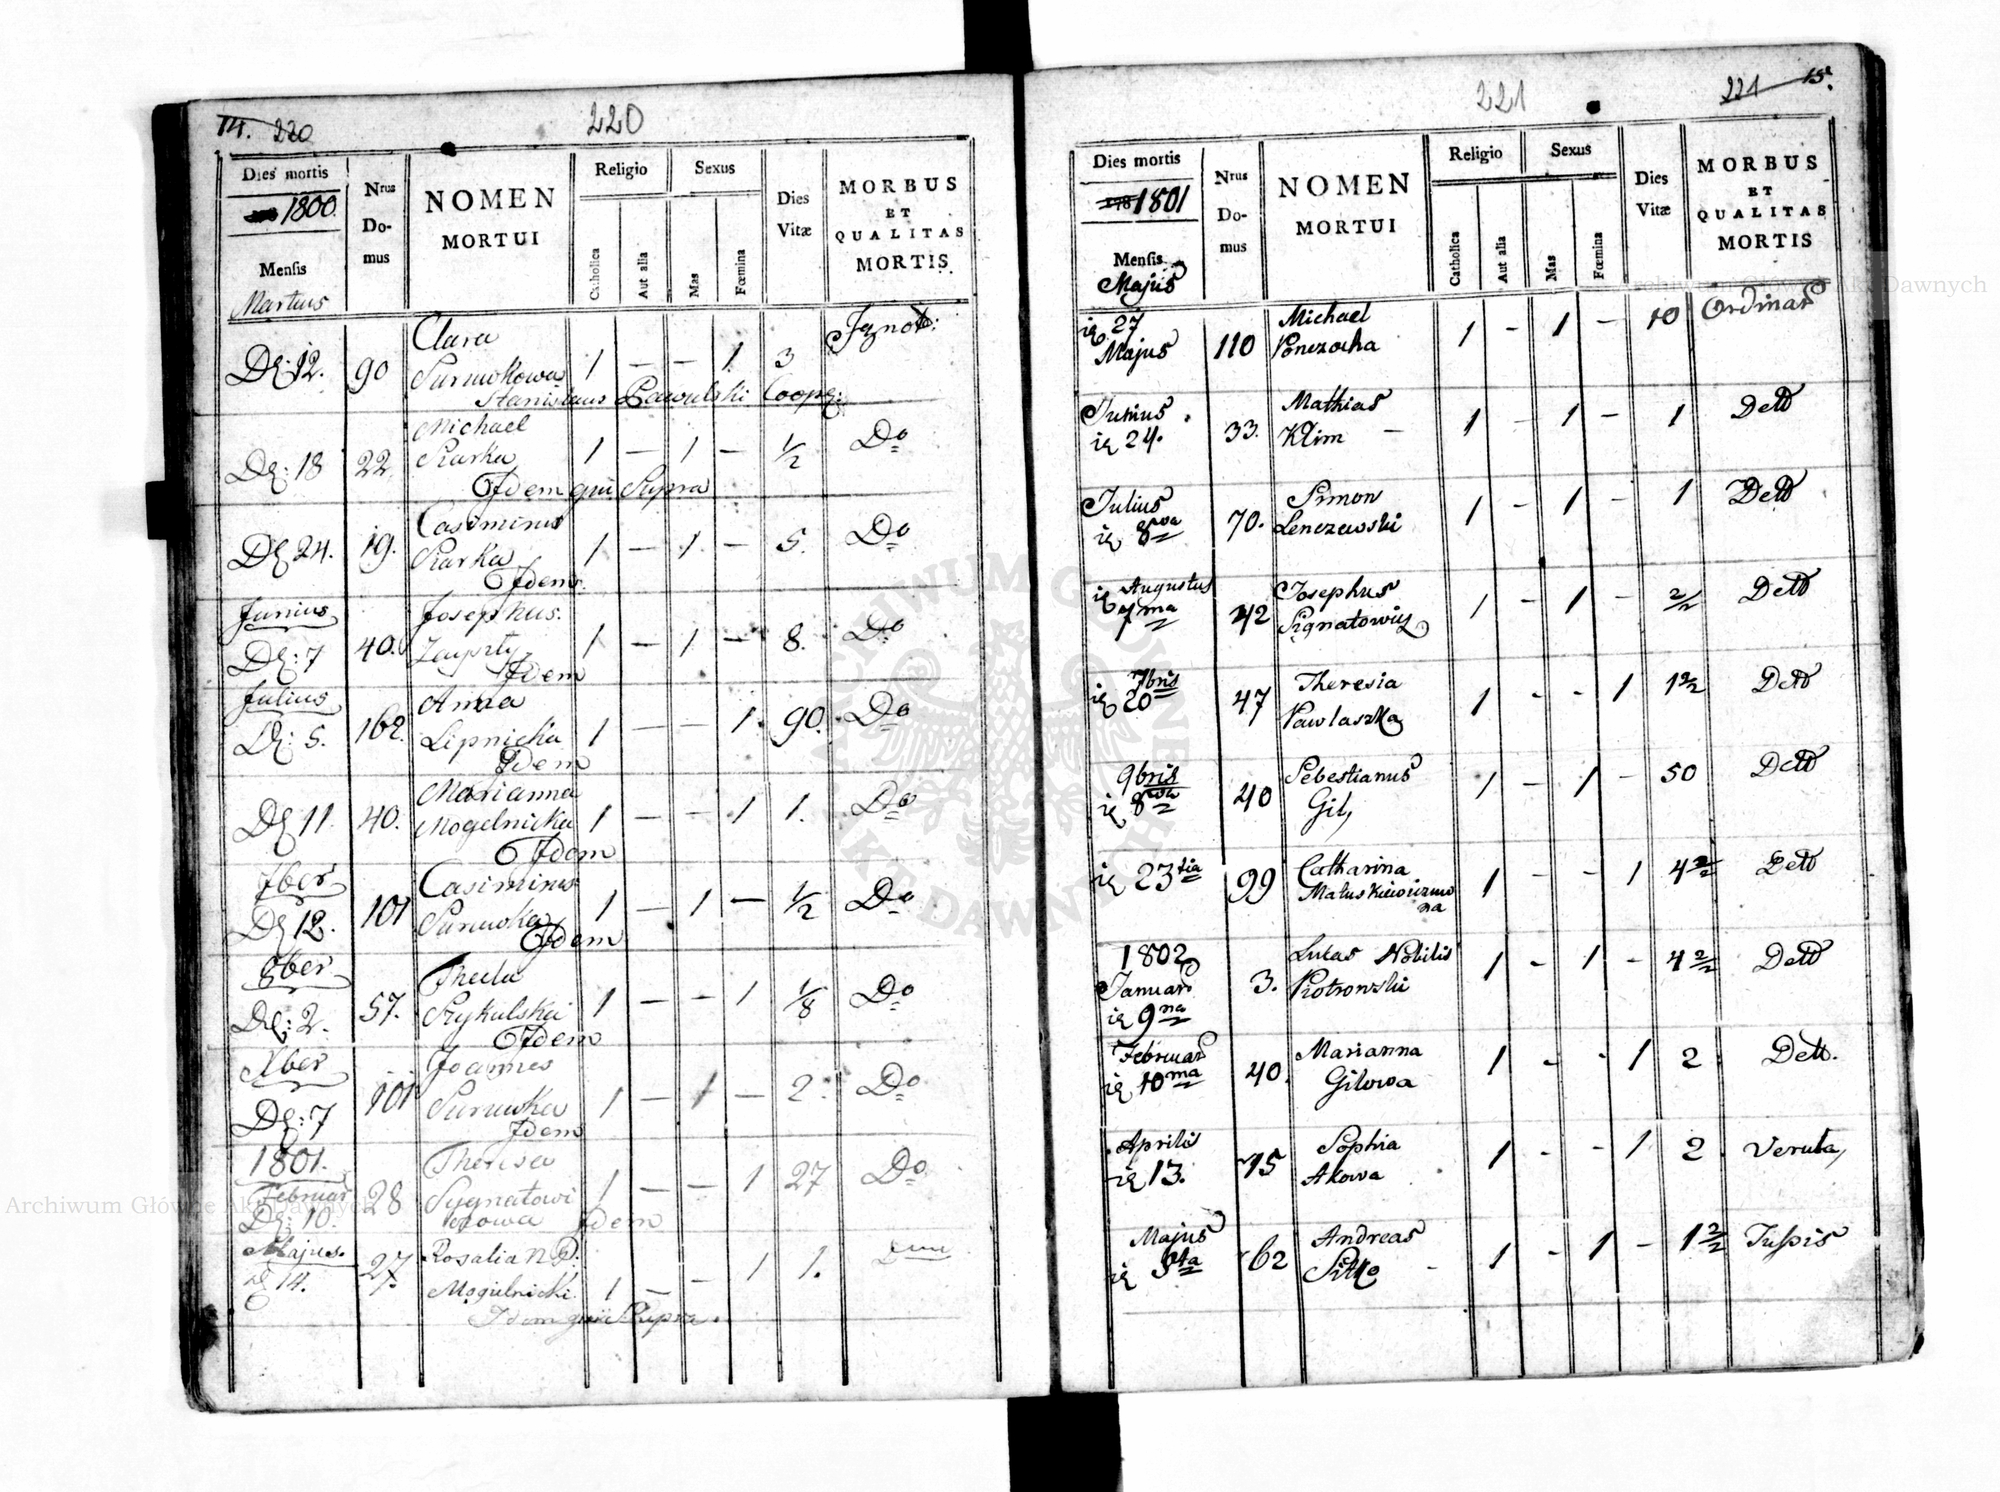 14. 220
220
Dies mortis
1800.
Mensis
Martius
Nrus
Do-
mus
NOMEN
MORTUI
Religio
Catholica
Aut alia
Sexus
Mas
Fœmina
Dies
Vitæ
MORBUS
ET
QUALITAS
MORTIS
Clara
12. 90 1 — — 1 3
Stanislaus Pawulski Coop
Michael
18 22 1 — 1 — 1/2 Do
Idem qui Supra
Casimirus
24. 19. 1 — 1 — 5. Do
Idem
Junius Josephus.
7 40. 1 — 1 — 8. Do
Idem
Julius Anna
5. 162. Lipnicka 1 — — 1 90. Do
Idem
Marianna
11 40. Mogelnicka 1 — — 1 1. Do
Idem
7ber Casimirus
12. 101 Surmka 1 — 1 — 1/2 Do
Idem
8ber Thecla
2. 57. 1 — — 1 1/8 Do
Idem
Xber Joannes
7 101 Surmka 1 — 1 — 2. Do
Idem
1801. Theresa
Februar 28 Sygnatowi 1 — — 1 27 Do
10. czowa Idem
Majus. Rosalia N D.
14. 27. Mogielnicki 1 — — 1 1.
Idem qui Supra.
221
221 15.
Dies mortis
178 1801
Mensis
Majus
Nrus
Do-
mus
NOMEN
MORTUI
Religio
Catholica
Aut alia
Sexus
Mas
Fœmina
Dies
Vitæ
MORBUS
ET
QUALITAS
MORTIS
27 Michael 1 - 1 - 10 Ordinar
Majus 110 Ponczocha
Junius Mathias Dett
24. 33. Klim 1 - 1 - 1
Julius Simon 1 - 1 - 1 Dett
8va 70. Lenczewski
Augustus Josephus 1 - 1 - 2/2 Dett
7ma 42 Signatowicz
7bris Theresia 1 - - 1 1 2/2 Dett
20 47 Pawlaszka
9bris Sebestianus 1 - 1 - 50 Dett
8va 40 Gil,
23tia 99 Catharina 1 - - 1 4 2/2 Dett
Matuskiewiczuw
na
1802 Lucas Nobilis 1 - 1 - 4 2/2 Dett
Januar 3. Piotrowski
9na
Februar Marianna 1 - - 1 2 Dett.
10ma 40. Gilowa
Aprilis Sophia 1 - - 1 2 Veruta,
13. 75 Akowa
Majus Andreas 1 - 1 - 1 2/2 Tussis
5ta 62 Sitko
Archiwum Główne Akt Dawnych
Archiwum Główne Akt Dawnych
ARCHIWUM GŁÓWNE AKT DAWNYCH